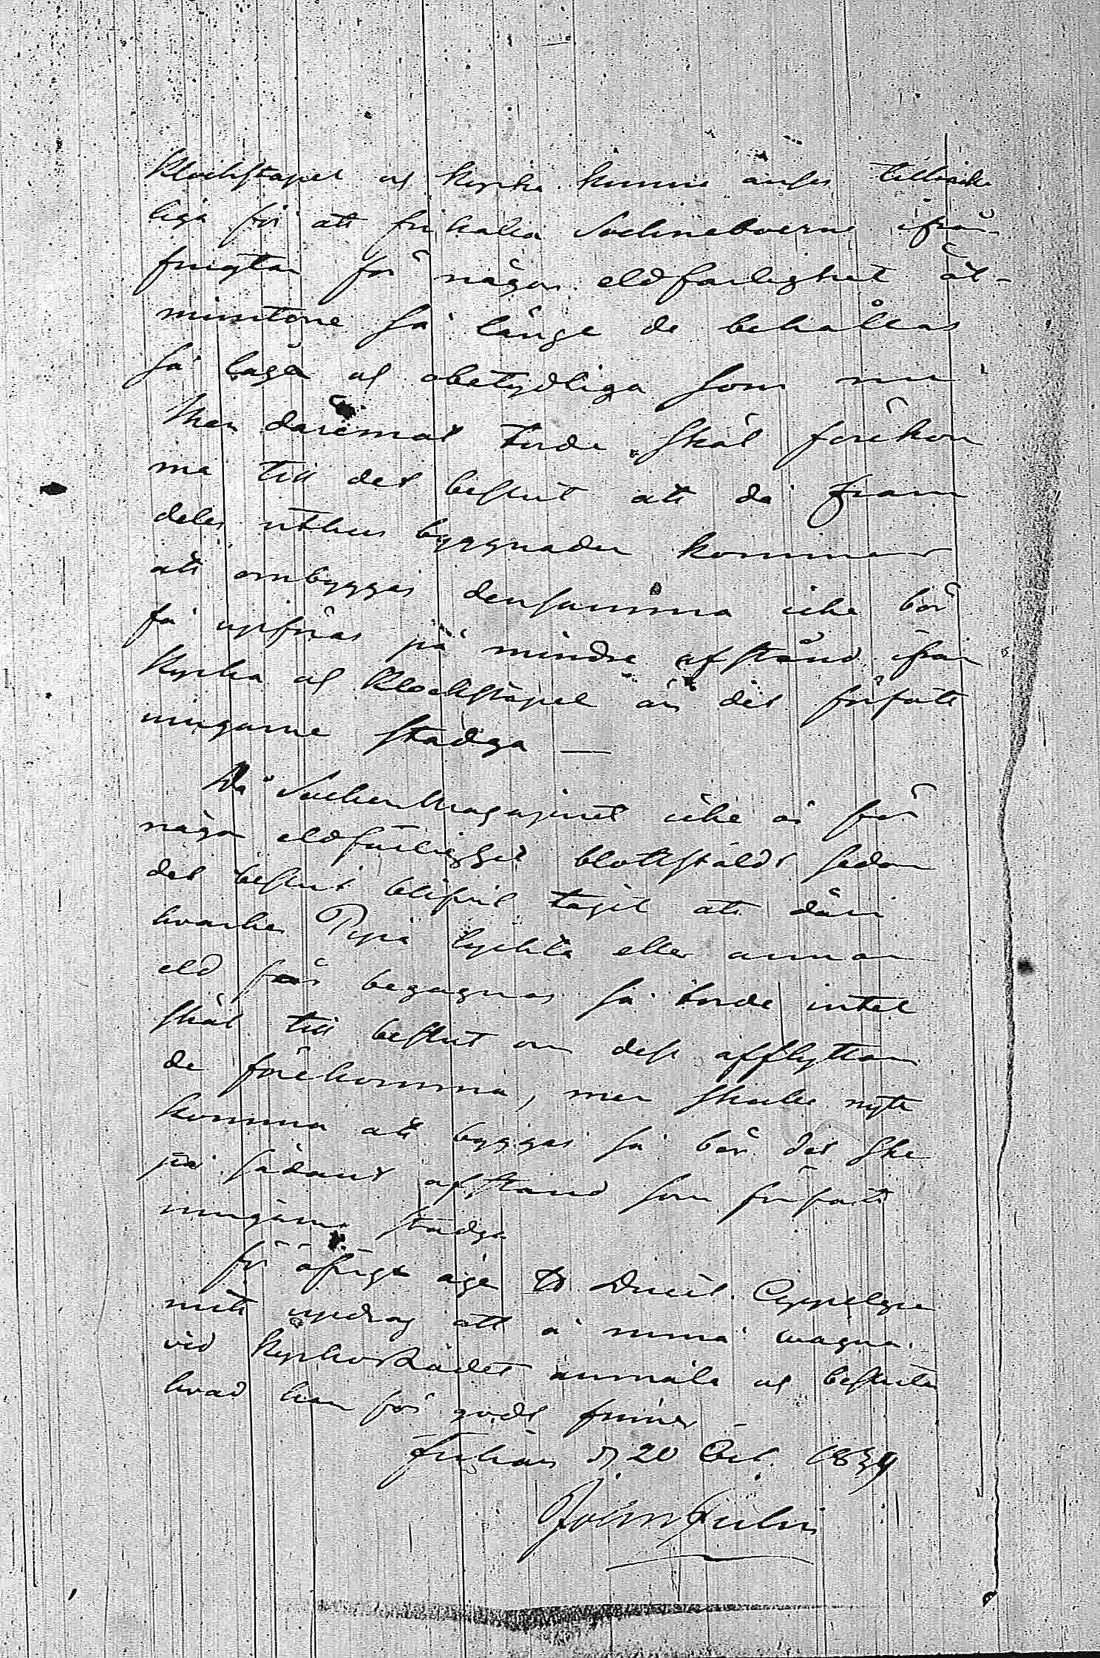 Klockstapel och Kyrka kunna anses tillräck
liga för att frikalla Sockneboerne ifrån
frugtan för någon eldfarlighet åt-
minstone så länge de behållas
så låga och obetydliga som nu
Men däremot torde skäl förekom
ma till det beslut att då fram
deles uthus byggnader kommer
att ombyggas densamma icke bör
få upföras på mindre afstånd ifrån
Kyrka och Klockstapel än det författ
ningarne stadga —
Då SockenMagazinet icke är för
någon eldfarlighet blottstäldt sedan
det beslut blifvit tagit att däri
hvarken Pipa lyckta eller annan
eld får begagnas så torde intet
skäl till beslut om dess afflyttan
de förekomma, men skulle nytt
komma att byggas så bör det ske
på sådant afstånd som författ
ningarne stadga
För öfrigt äge Direct.
mitt updrag att å mina wägnar
vid KyrkoRådet anmäla och besluta
hvad han för godt finner
Fiskars d 20 Oct. 1839
John Julin